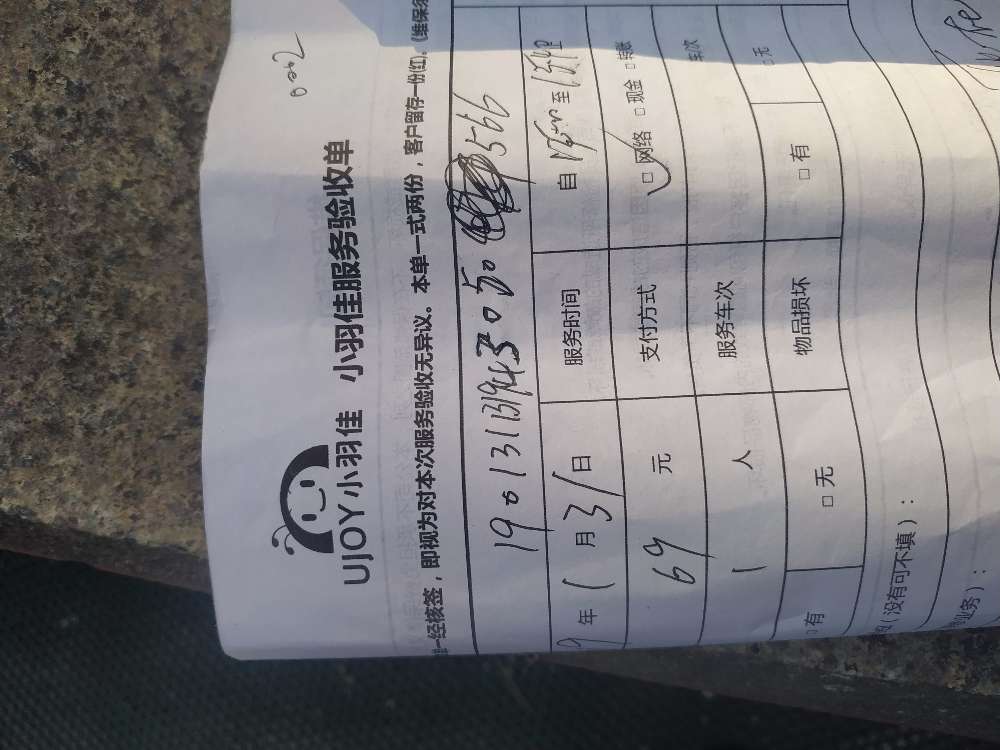 UJOY小羽佳 小羽佳服务验收单
一经核签，即视为对本次服务验收无异议。本单一式两份，客户留存一份(红)。(维保
190131131943050 566
9 年 1 月 31 日 服务时间 自 至
69 元 支付方式 □网络 □现金 □转账
1 人 服务车次 车次
□有 □无 物品损坏 □有 □无
(没有可不填)：
业务)：